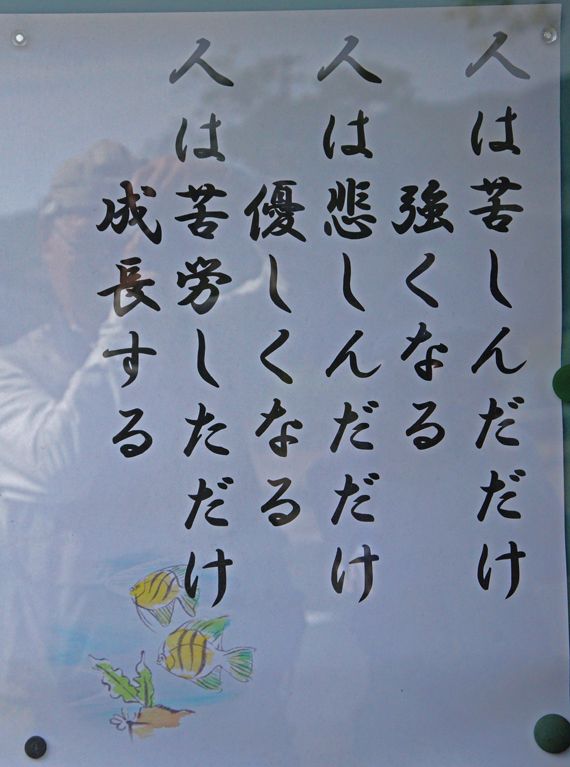 人は苦しんだだけ
強くなる
人は悲しんだだけ
優しくなる
人は苦労しただけ
成長する